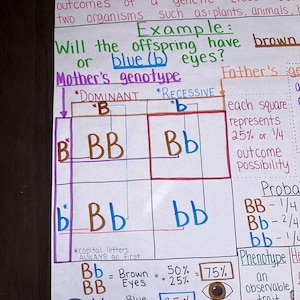 outcomes of a genetic cross
two organisms such as: plants, animals,
Example:
Will the offspring have brown
or blue (b) eyes?
Mother's genotype
Father's
*DOMINANT *RECESSIVE
*B *b
B BB Bb
b Bb bb
each square
represents
25% or 1/4
outcome
possibility
*capital letters
ALWAYS go first
BB - 1/4
Bb - 2/4
bb - 1/4
Bb = Brown - 50% = 75%
BB Eyes + 25%
Phenotype
an
observable
Blue